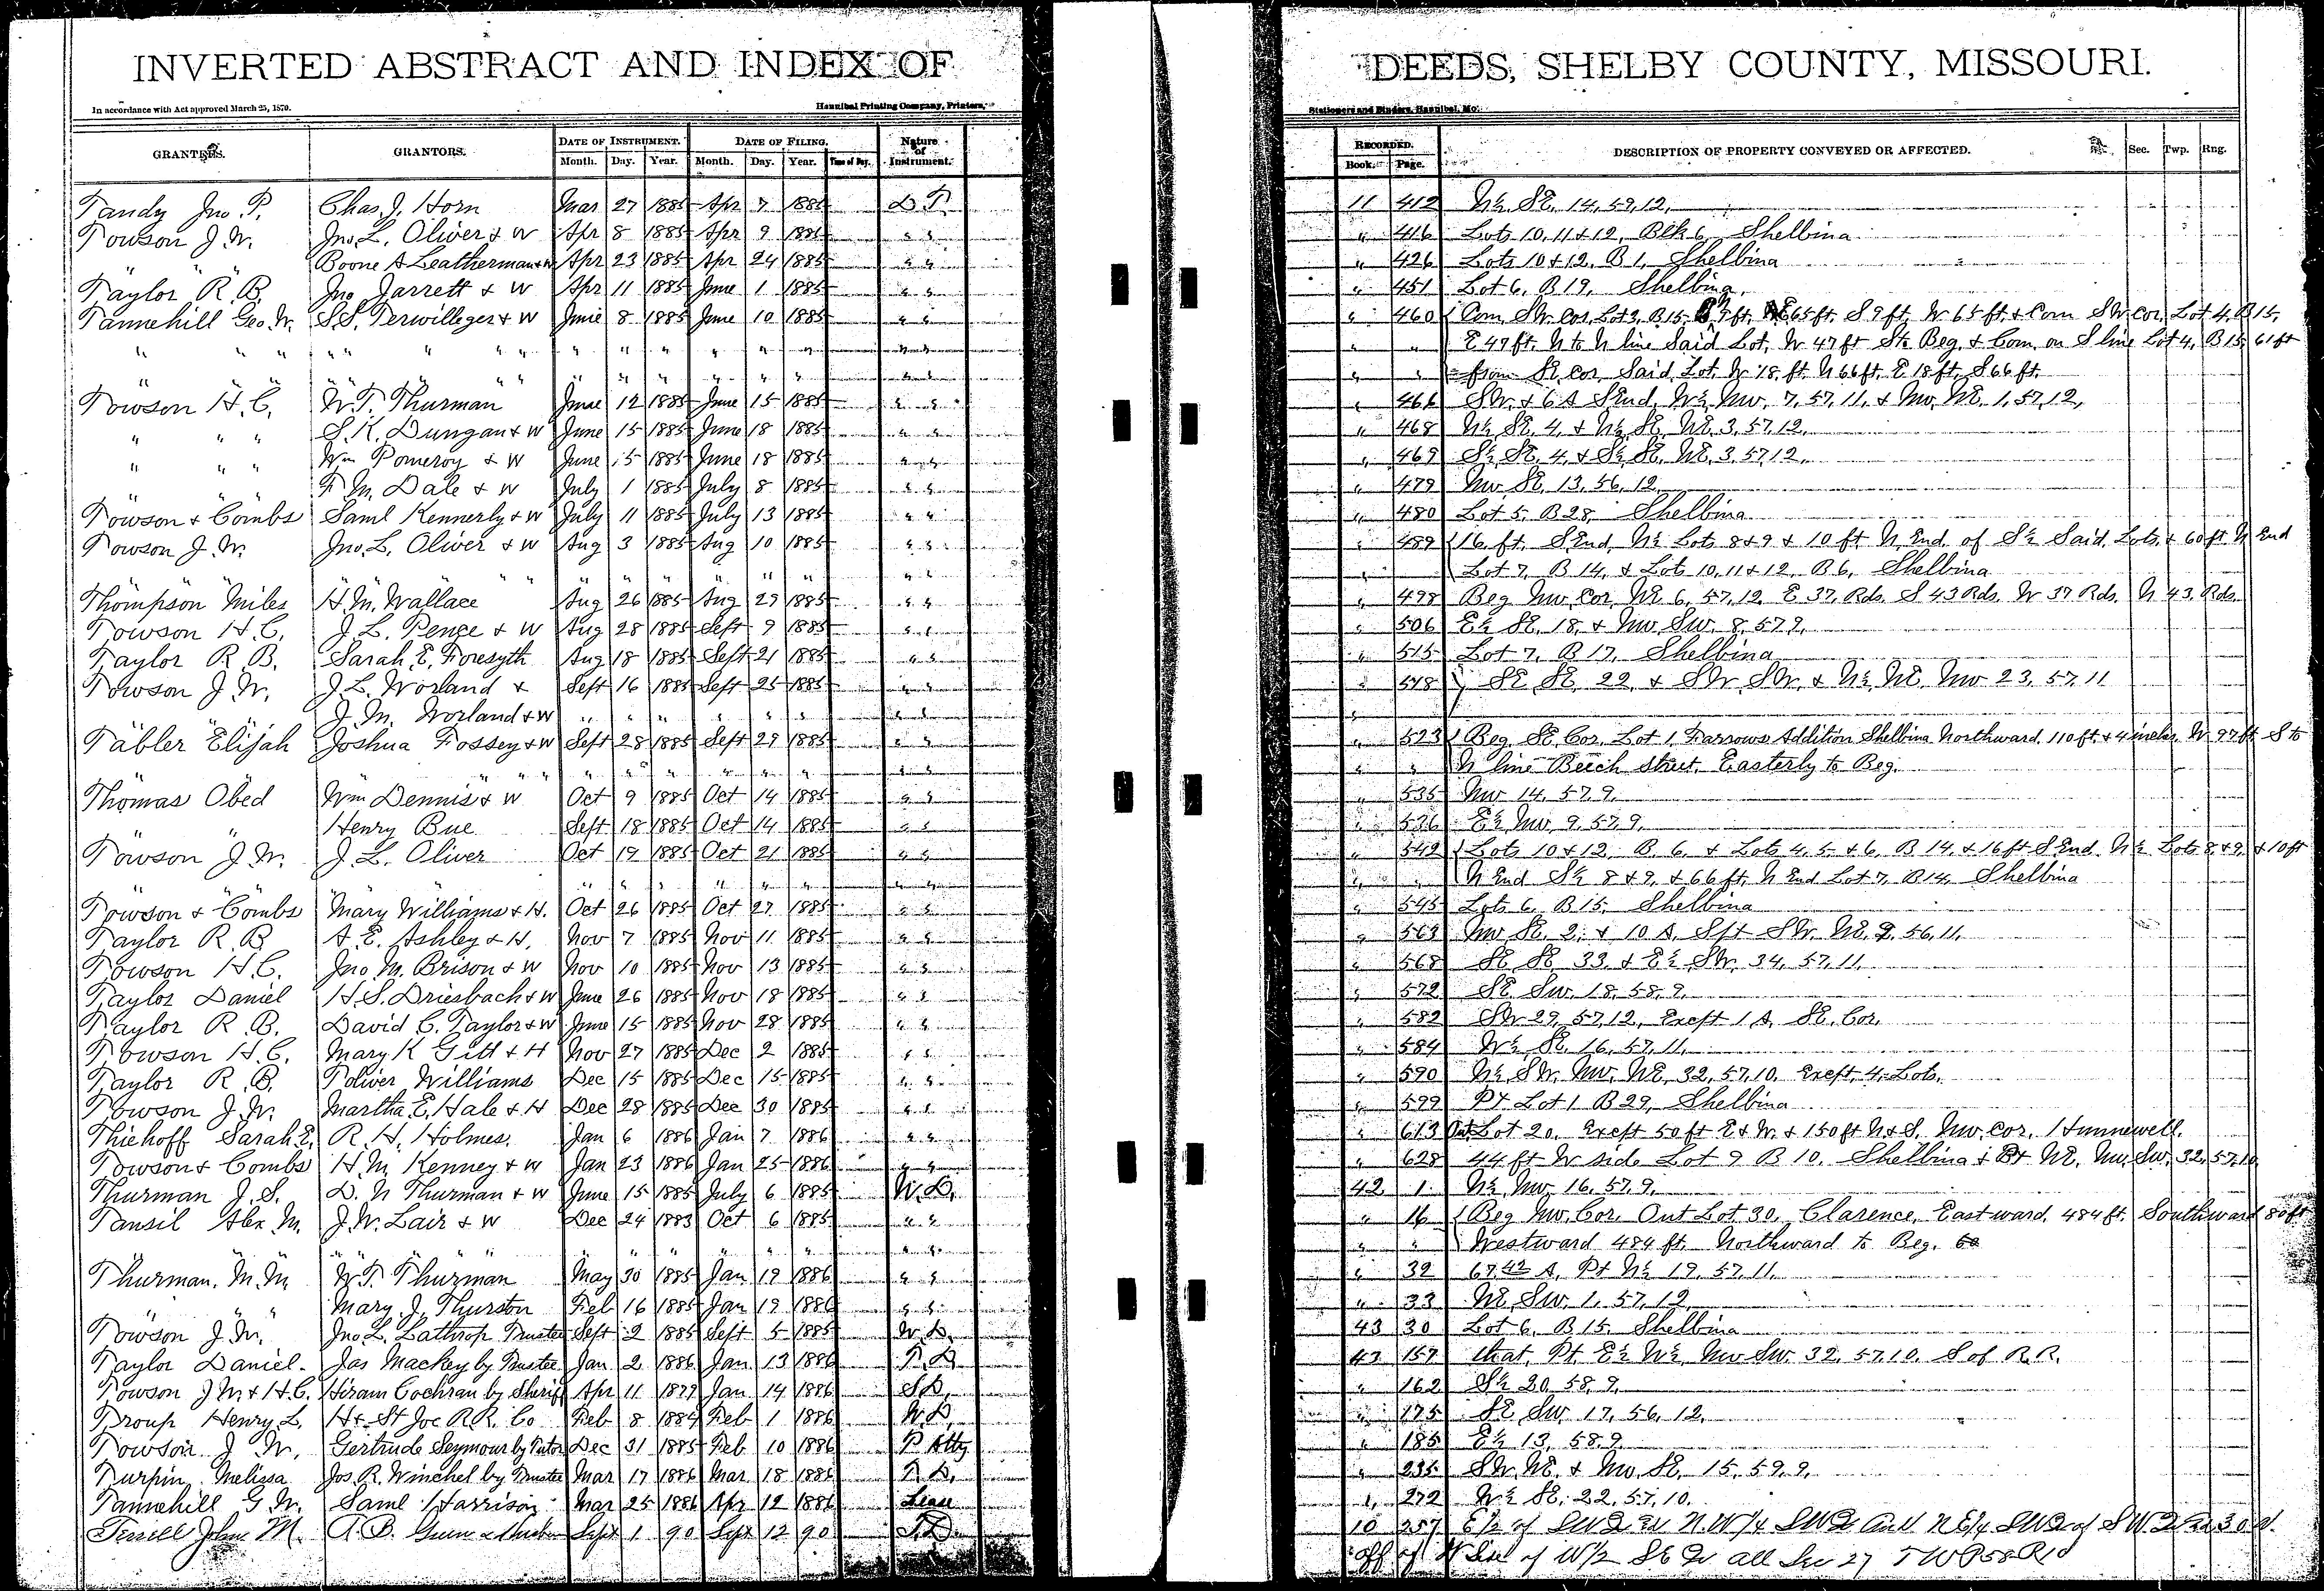 INVERTED ABSTRACT AND INDEX OF DEEDS, SHELBY COUNTY, MISSOURI.
In accordance with Act approved March 25, 1870. Hannibal Printing Company, Printers, Stationers and Binders, Hannibal, Mo.
GRANTEES. GRANTORS. DATE OF INSTRUMENT. DATE OF FILING. Nature of Instrument. RECORDED. DESCRIPTION OF PROPERTY CONVEYED OR AFFECTED. Sec. Twp. Rng.
Month. Day. Year. Month. Day. Year. Time of Day. Book. Page.
Tandy Jno. P. Chas. J. Horn Mar 27 1885 Apr 7 1885 D.T. 11 412 N½ SE. 14, 59, 12,
Towson J. W. Jno. L. Oliver & W Apr 8 1885 Apr 9 1885 " " " 416 Lots 10, 11 & 12, Blk 6, Shelbina
" " " Boone A Leatherman & W Apr 23 1885 Apr 24 1885 " " " 426 Lots 10 & 12, B 1, Shelbina
Taylor R. B. Jno Jarrett & W Apr 11 1885 June 1 1885 " " " 451 Lot 6, B 19, Shelbina,
Tannehill Geo. W. S. S. Terwilleger & W June 8 1885 June 10 1885 " " " 460 Com. SW. cor. Lot 3, B 15, 9 ft. E 65 ft. S 9 ft. W 65 ft. & Com SW cor. Lot 4, B 15,
" " " " " " " " " " " " " " " " " " E 47 ft. N to N line Said Lot, W 47 ft S to Beg. & Com. on S line Lot 4, B 15, 61 ft
" " " " " " " " " " " " " from SE cor. Said Lot, W 18 ft. N 66 ft. E 18 ft. S 66 ft.
Towson H. C. W. T. Thurman June 12 1885 June 15 1885 " " " 466 SW. & 6 A S End, W½ NW. 7, 57, 11, & NW. NE. 1, 57, 12,
" " " S. K. Dungan & W June 15 1885 June 18 1885 " " " 468 N½ SE. 4, & N½ SE. NE. 3, 57, 12,
" " " Wm Pomeroy & W June 15 1885 June 18 1885 " " " 469 S½ SE. 4, & S½ SE. NE. 3, 57, 12,
" " " F. M. Dale & W July 1 1885 July 8 1885 " " " 479 NW SE. 13, 56, 12
Towson & Combs Saml Kennerly & W July 11 1885 July 13 1885 " " " 480 Lot 5, B 28, Shelbina
Towson J. W. Jno. L. Oliver & W Aug 3 1885 Aug 10 1885 " " " 489 16 ft. S End, N½ Lots 8 & 9 & 10 ft N. End of S½ Said Lots, & 60 ft. N End
" " " " " " " " " " " " Lot 7, B 14, & Lots 10, 11 & 12, B 6, Shelbina
Thompson Miles H. M. Wallace Aug 26 1885 Aug 29 1885 " " " 498 Beg NW cor. NE 6, 57, 12, E 37, Rds. S 43 Rds. W 37 Rds. N 43, Rds.
Towson H. C. J. L. Pence & W Aug 28 1885 Sept 9 1885 " " " 506 E½ SE. 18, & NW SW. 8, 57, 9,
Taylor R. B. Sarah E. Foresyth Aug 18 1885 Sept 21 1885 " " " 515 Lot 7, B 17, Shelbina
Towson J. W. J. L. Worland & Sept 16 1885 Sept 25 1885 " " " 518 SE SE. 22, & SW SW. & N½ NE. NW 23, 57, 11
" " " J. M. Worland & W " " " " " " " " "
Tabler Elijah Joshua Fossey & W Sept 28 1885 Sept 29 1885 " " " 523 Beg. SE Cor. Lot 1, Farrows Addition Shelbina Northward. 110 ft & 4 inches, W 97 ft. S to
" " " " " " " " " " " " " N line Beech street, Easterly to Beg.
Thomas Obed Wm Dennis & W Oct 9 1885 Oct 14 1885 " " " 535 NW 14, 57, 9,
" " Henry Bue Sept 18 1885 Oct 14 1885 " " " 536 E½ NW 9, 57, 9,
Towson J. W. J. L. Oliver Oct 19 1885 Oct 21 1885 " " " 542 Lots 10 & 12, B. 6, & Lots 4, 5, & 6, B 14, & 16 ft S End. N½ Lots 8, & 9, & 10 ft
" " " " " " " " " " N End S½ 8 & 9, & 66 ft. N End Lot 7, B 14, Shelbina
Towson & Combs Mary Williams & H. Oct 26 1885 Oct 27 1885 " " " 545 Lots 6, B 15, Shelbina
Taylor R. B. A. E. Ashley & H. Nov 7 1885 Nov 11 1885 " " " 563 NW SE. 2, & 10 A. S pt SW. NE. 2, 56, 11,
Towson H. C. Jno. M. Brison & W Nov 10 1885 Nov 13 1885 " " " 568 SE SE 33, & E½ SW. 34, 57, 11,
Taylor Daniel H. S. Driesbach & W June 26 1885 Nov 18 1885 " " " 572 SE SW. 18, 58, 9,
Taylor R. B. David C. Taylor & W June 15 1885 Nov 28 1885 " " " 582 SW 29, 57, 12, Except 1 A. SE. Cor.
Towson H. C. Mary K Gill & H Nov 27 1885 Dec 2 1885 " " " 584 W½ SE. 16, 57, 11,
Taylor R. B. Toliver Williams Dec 15 1885 Dec 15 1885 " " " 590 N½ SW. NW. NE, 32, 57, 10, Except, 4, Lots,
Towson J. W. Martha E. Hale & H Dec 28 1885 Dec 30 1885 " " " 599 Pt Lot 1 B 29, Shelbina
Thiehoff Sarah E. R. H. Holmes. Jan 6 1886 Jan 7 1886 " " " 613 Out Lot 20, Except 50 ft E & W. & 150 ft N & S. NW. cor. Hunnewell.
Towson & Combs H. M. Kenney & W Jan 23 1886 Jan 25 1886 " " " 628 44 ft W side Lot 9 B 10, Shelbina & Pt NE. NW. SW. 32, 57, 10
Thurman J. S. D. N Thurman & W June 15 1885 July 6 1885 W. D. 42 1 N½ NW 16, 57, 9,
Tansil Alex. M. J. W. Lair & W Dec 24 1883 Oct 6 1885 " " " 16 Beg NW. Cor. Out Lot 30, Clarence, Eastward, 484 ft. Southward 80 ft
" " " " " " " " " " " " Westward 484 ft. Northward to Beg.
Thurman. M. M W. T. Thurman May 30 1885 Jan 19 1886 " " " 32 67.42 A, Pt N½ 19, 57, 11,
" " " Mary J. Thurston Feb 16 1885 Jan 19 1886 " " " 33 NE SW. 1, 57, 12,
Towson J. W. Jno. L. Lathrop Trustee Sept 2 1885 Sept 5 1885 W. D. 43 30 Lot 6, B 15, Shelbina
Taylor Daniel. Jas Mackey by Trustee Jan 2 1886 Jan 13 1886 T. D. 47 157 that Pt E½ W½ NW SW. 32, 57, 10, S of R. R.
Towson J W. & H. C. Hiram Cochran by Sheriff Apr 11 1877 Jan 14 1886 S. D. " 162 S½ 20, 58, 9,
Troup Henry L. H & St Joe R. R. Co Feb 8 1884 Feb 1 1886 W. D. " 175 SE SW. 17, 56, 12,
Towson J. W. Gertrude Seymour by Tutor Dec 31 1885 Feb 10 1886 P Atty " 185 E½ 13, 58, 9
Turpin Melissa Jos. R. Winchel by Trustee Mar 17 1886 Mar 18 1886 T. D. " 235 SW. NE. & NW SE. 15, 59, 9,
Tannehill G. W. Saml Harrison Mar 25 1886 Apr 12 1886 Lease " 272 W½ SE. 22, 57, 10,
Terrill John M. A. B. Sept 1 90 Sept 12 90 T. D. 10 257 E½ of SW N. W¼ SW and N E¼ SW of S W 30 A.
off of W Side of W½ SE Qr all Sec 27 TWP 58 R 10